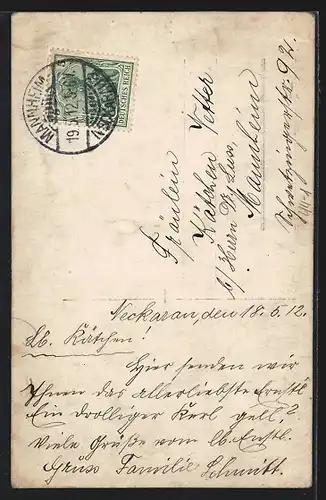 MANNHEIM
19.5.12.
DEUTSCHES REICH
Fräulein
Käthchen Vetter
b/ Herrn Dr. Luss,
Mannheim
Schwetzingerstr. 92.
Neckarau, den 18.5.12.
Lb. Kätchen!
Hier senden wir
Ihnen das allerliebste Ernstl
Ein drolliger Kerl gell?
Viele Grüße vom lb. Ernstl.
Gruss Familie Schmitt.